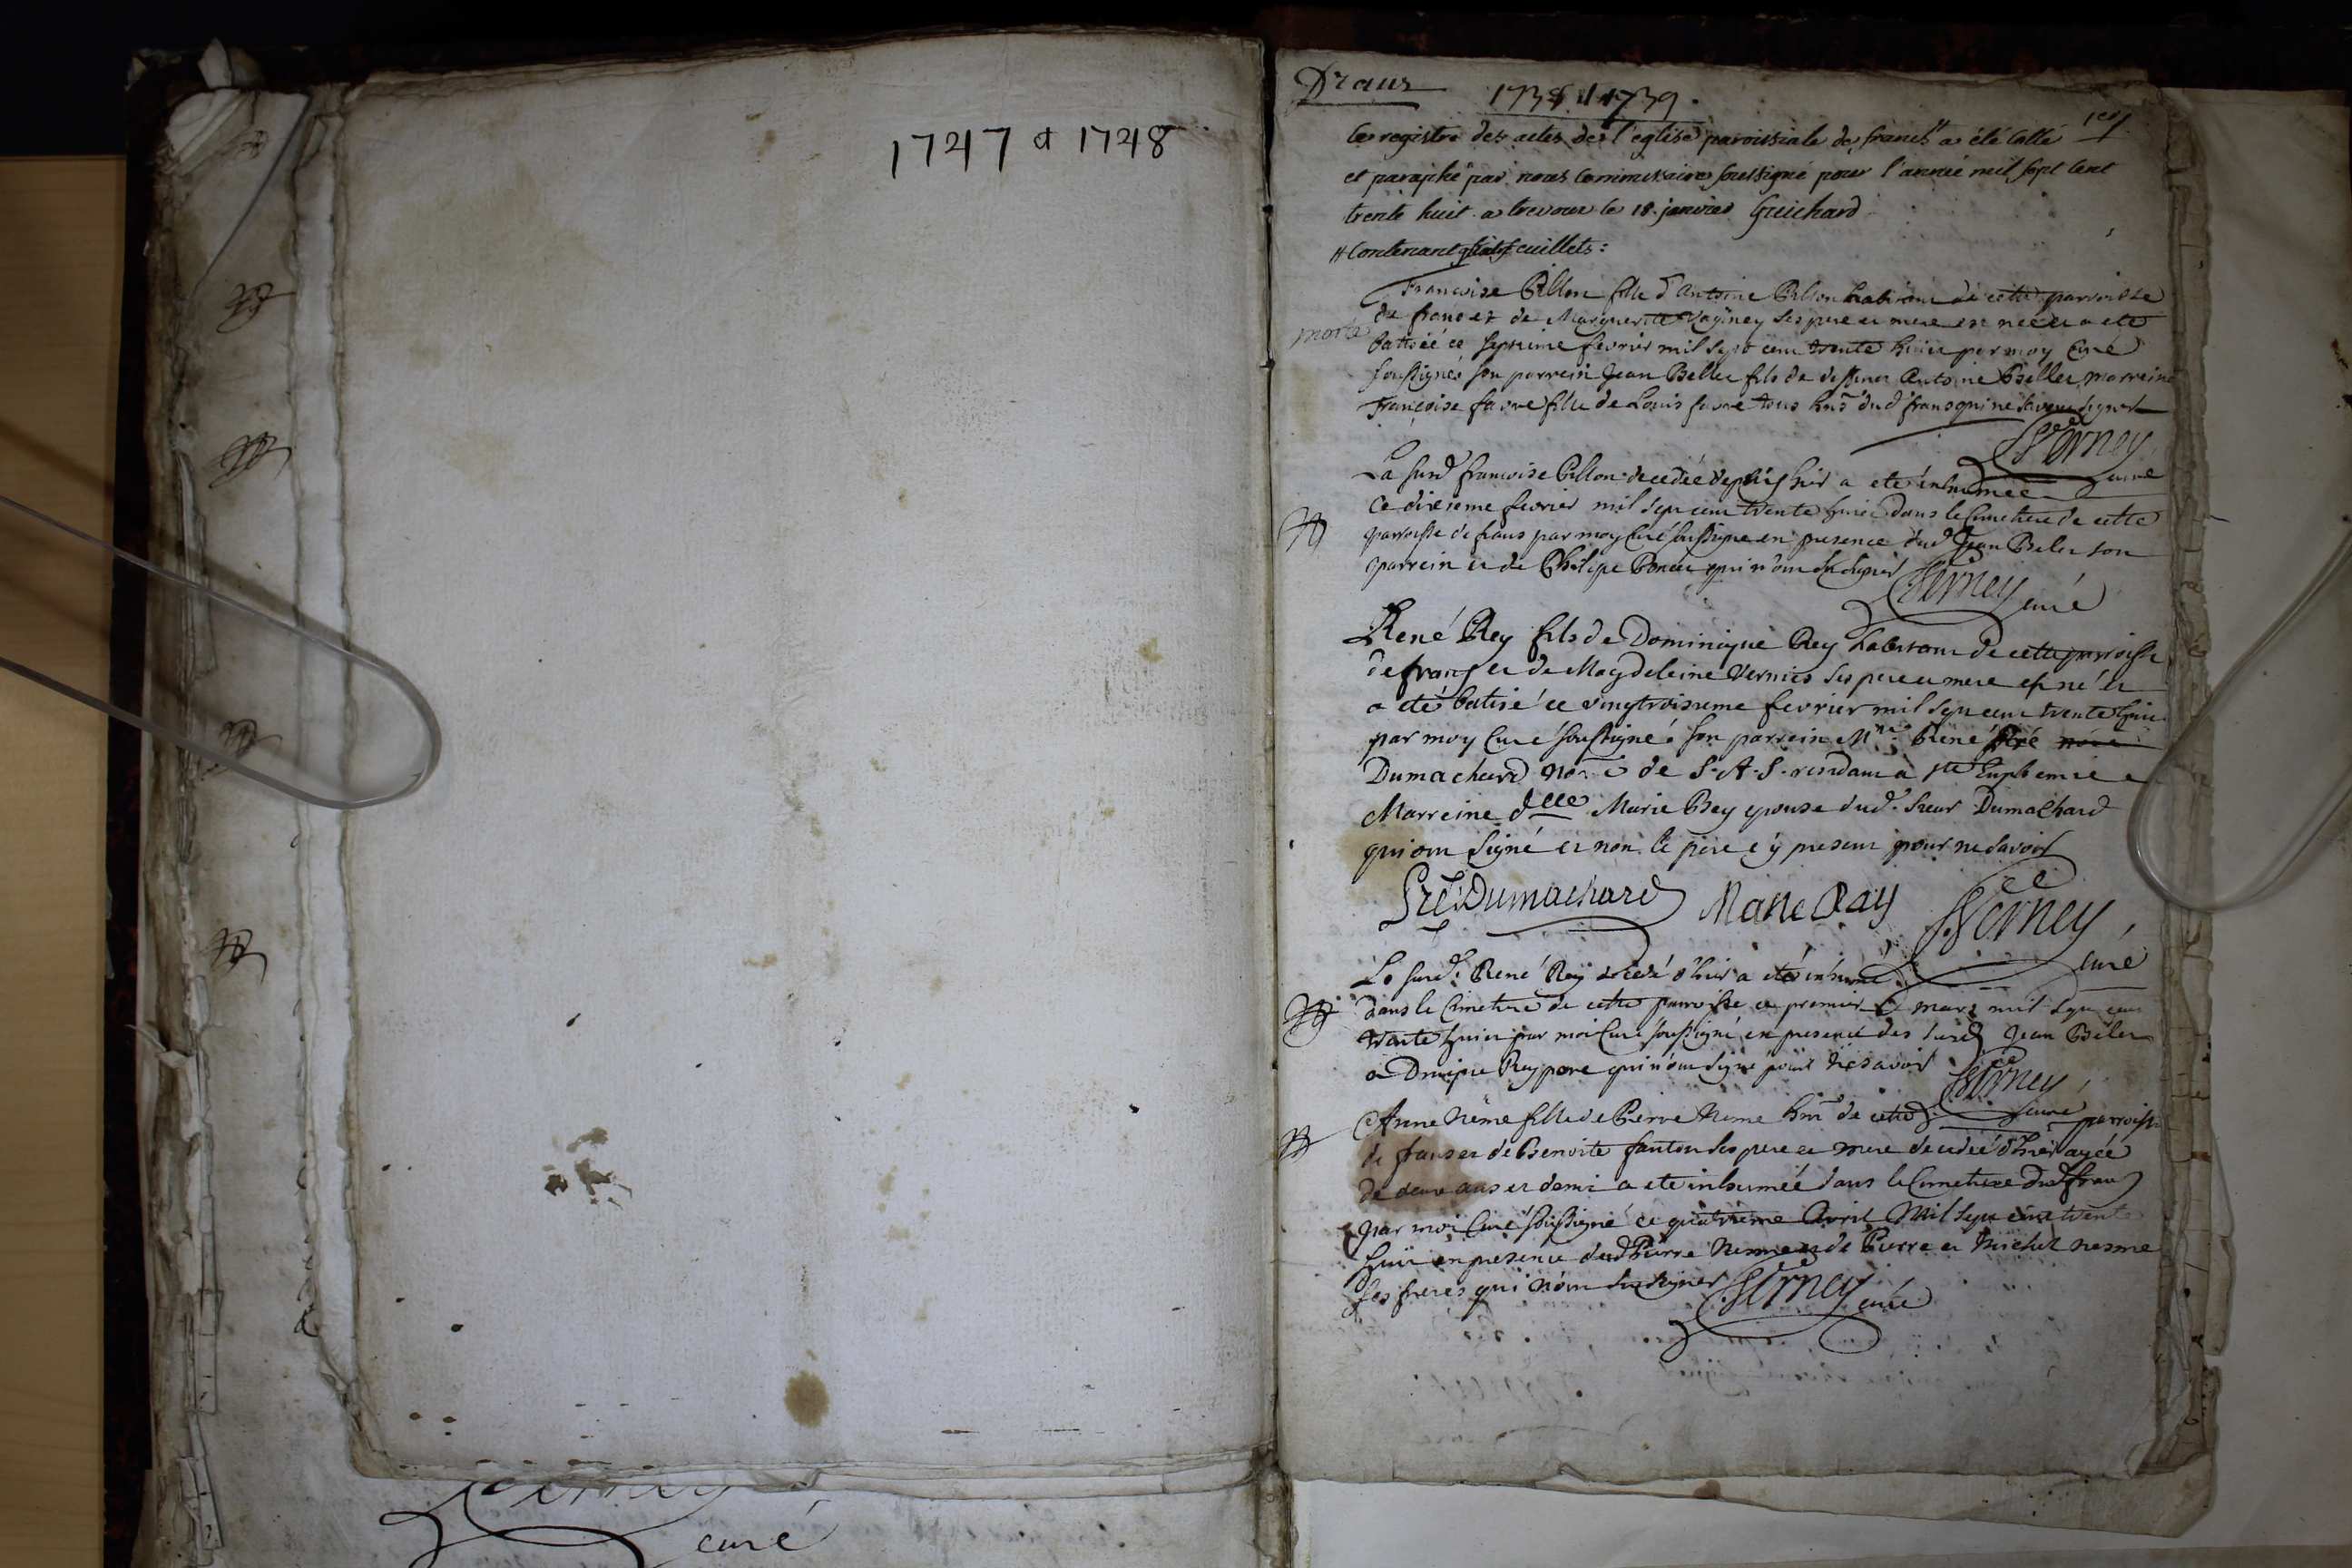 1747 a 1748
1738 1739.
1er
le registre des actes de l'eglise paroissiale de francs a été cotté
et paraphé par nous commissaire soussigné pour l'année mil sept cent
trente huit a trevoux le 18 janvier Guichard
contenant feuillets:
Francoise Billon fille d'Antoine Billon habitant de cette parroisse
de frans et de Marguerite ses pere et mere est née et a eté
morte
batisée ce septieme fevrier mil sept cent trente huit par moy Curé
soussigné son parrein Jean Beller fils de deffunct Antoine Beller marreine
Françoise favre fille de Louis favre tous dud frans qui ne savent signer
Verney
curé
La surd francoise Billon decedée depuis hier a eté inhumée
ce dixieme fevrier mil sept cent trente huit dans le Cimetiere de cette
parroisse de frans par moy Curé soussigné en presence dud Jean Beler son
parrein et de Philipe Poncet qui n'ont su signer Verney curé
René Rey fils de Dominique Rey habitant de cette parroisse
de frans et de Magdeleine Vernier ses pere et mere est né et
a eté batisé ce vingtroisieme fevrier mil sept cent trente huit
par moy Curé soussigné son parrein Me René
Dumachard de S.A.S. residant a ste Euphemie
Marreine dlle Marie Rey epouse dud. sieur Dumachard
qui ont signé et non le pere cy present pour ne savoir
Dumachard Marie Ray Verney
curé
Le surd. René Rey decedé d'hier a eté inhumé
dans le Cimetiere de cette parroisse ce premier mars mil sept cent
trente huit par moi Curé soussigné en presence des surd Jean Beler
Rey pere qui n'ont signé pour ne savoir Verney
curé
Anne Neme fille de Pierre Neme de cette parroisse
de frans et de Benoite fanton ses pere et mere decedée d'hier agée
de deux ans et demi a eté inhumée dans le Cimetiere dud frans
par moi Curé soussigné ce quatrieme Avril Mil sept cent trente
huit en presence dud Pierre Nesme et de Pierre et Michel nesme
ses freres qui n'ont su signer Verney curé
curé